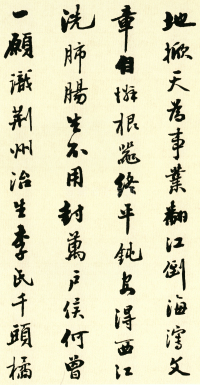 地掀天為事業翻江倒海瀉文
章自慚根器終平鈍安得西江
洗肺腸生不用封萬戶侯何曾
一願識荊州治生李氏千頭橘